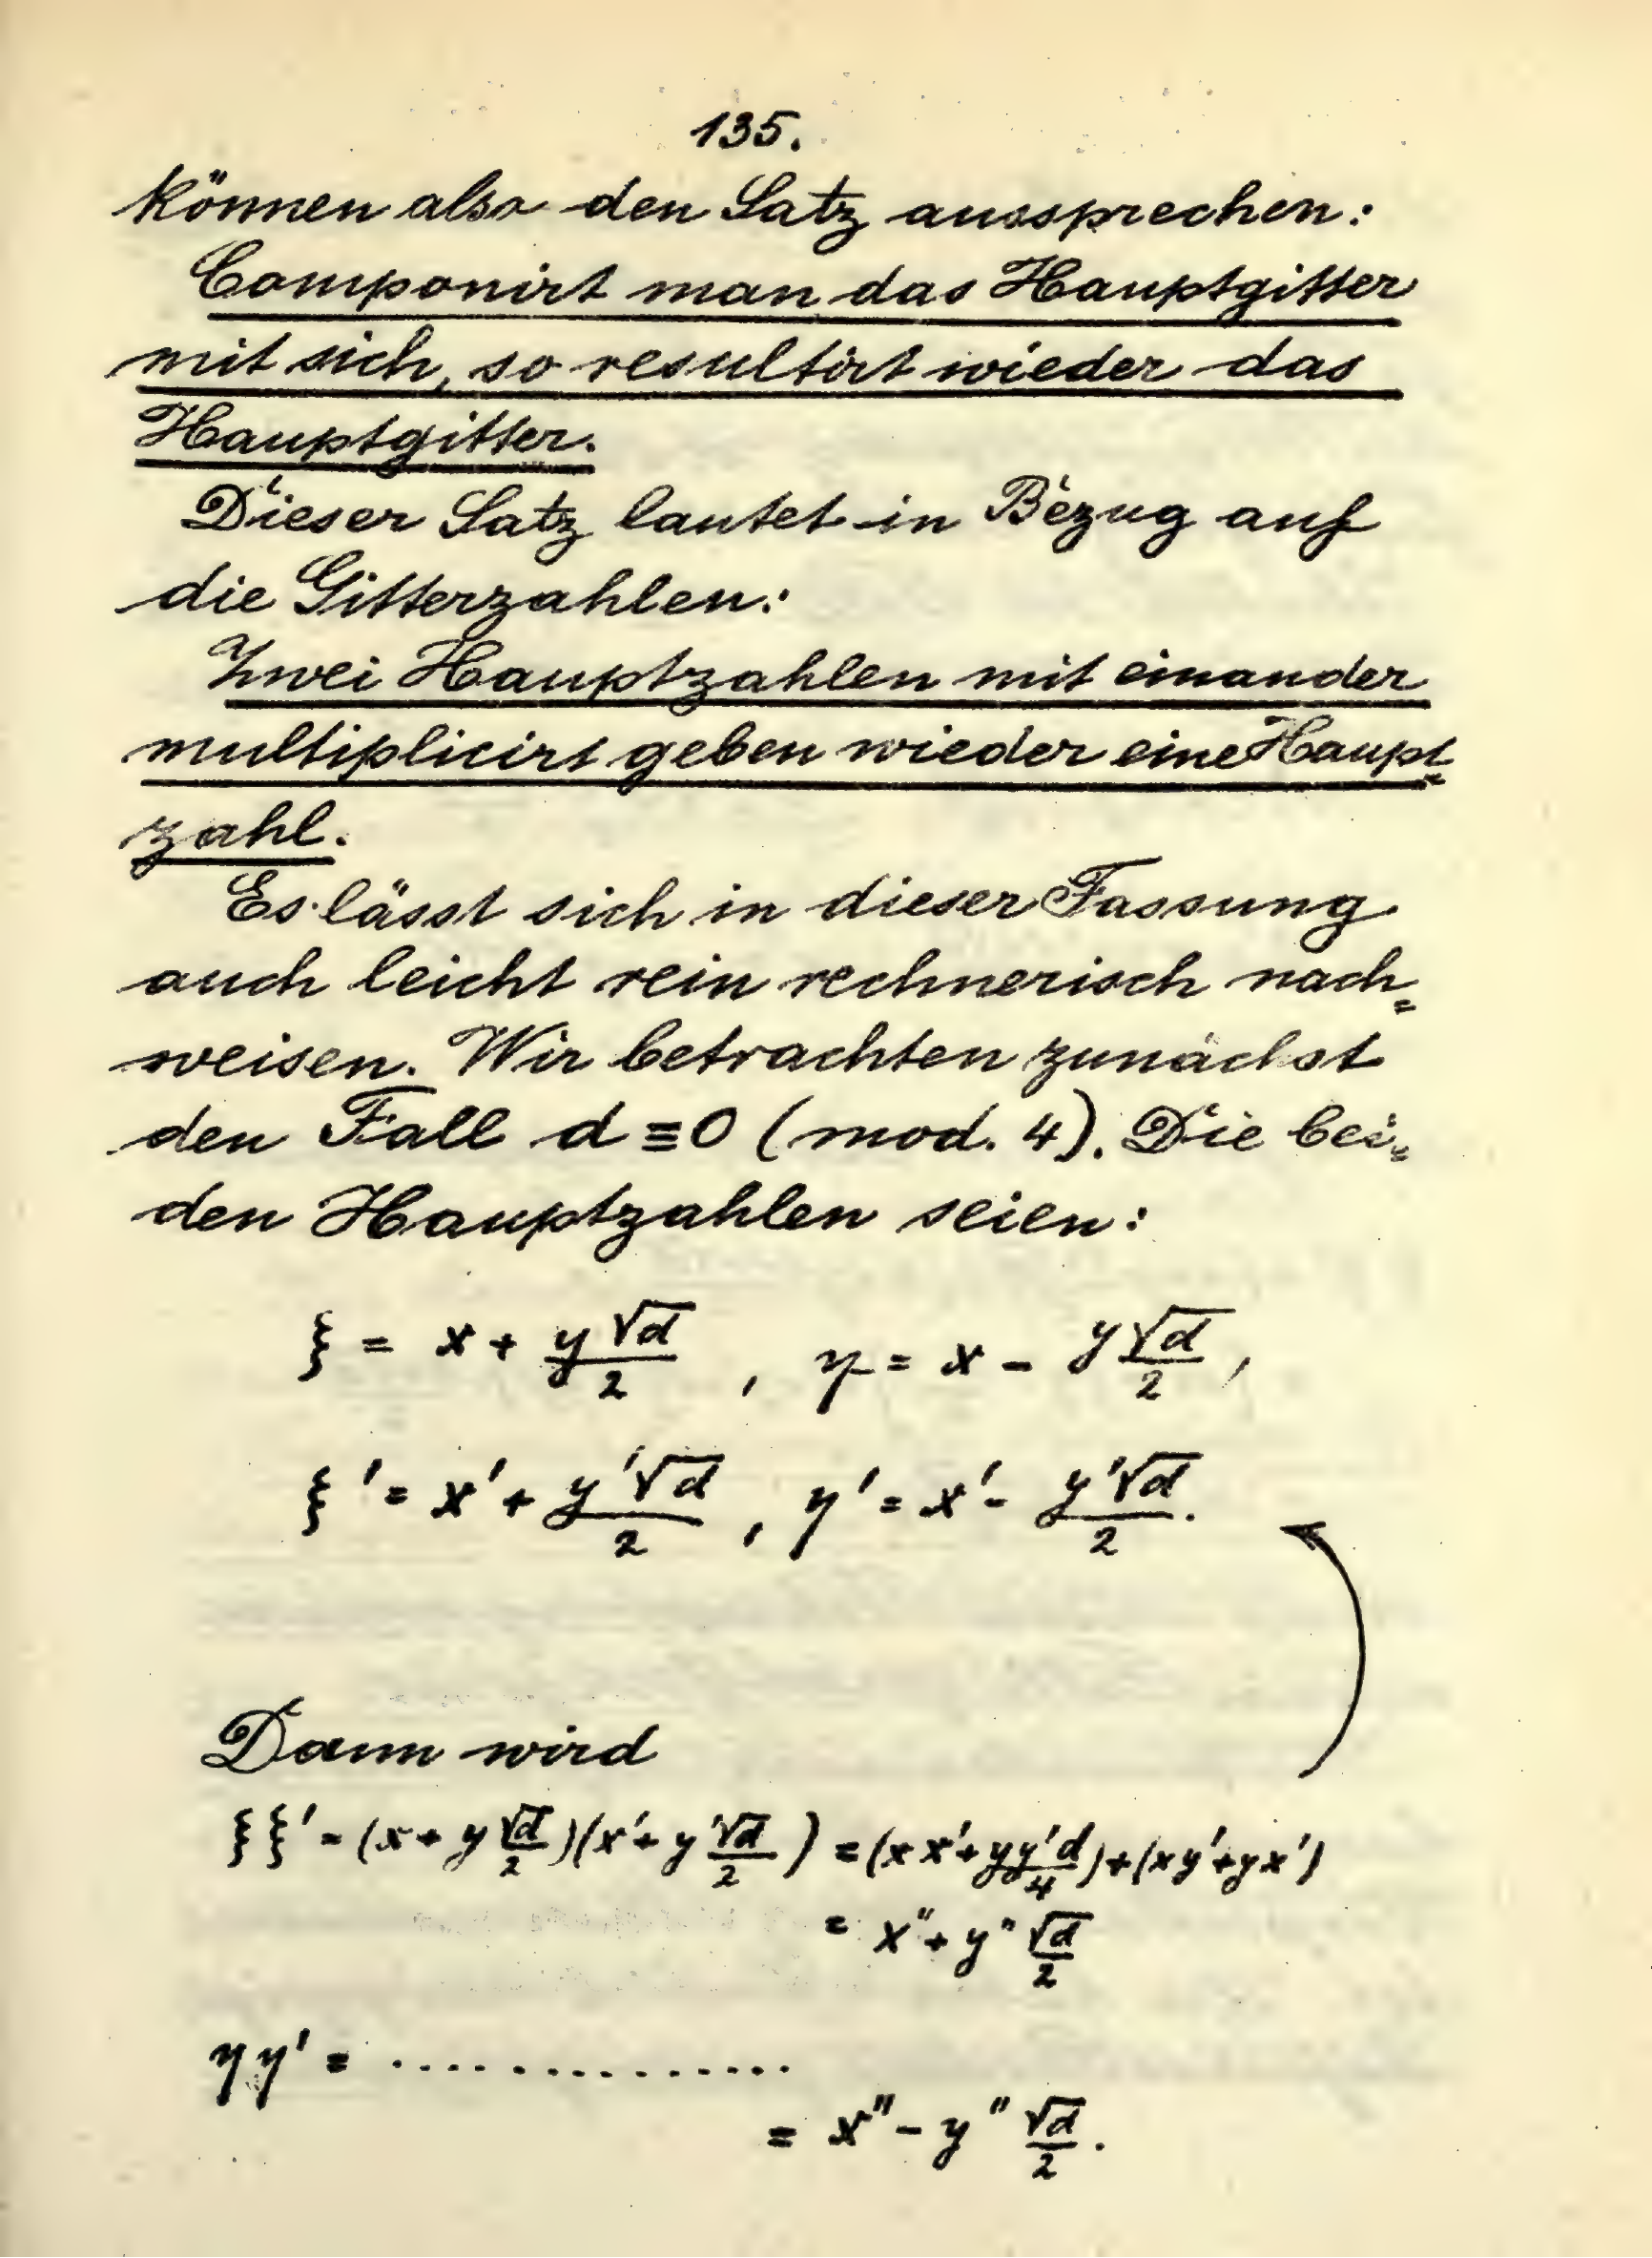 135.
können also den Satz aussprechen:
Componirt man das Hauptgitter
mit sich, so resultirt wieder das
Hauptgitter.
Dieser Satz lautet in Bezug auf
die Gitterzahlen:
Zwei Hauptzahlen mit einander
multiplicirt geben wieder eine Haupt=
zahl.
Es lässt sich in dieser Fassung
auch leicht rein rechnerisch nach=
weisen. Wir betrachten zunächst
den Fall d ≡ 0 (mod. 4). Die bei=
den Hauptzahlen seien:
ξ = x + y√d/2 , η = x - y√d/2 ,
ξ' = x' + y'√d/2 , η' = x' - y'√d/2 .
Dann wird
ξξ' = (x + y √d/2)(x' + y'√d/2) = (xx' + yy'd/4) + (xy' + yx')
= x" + y" √d/2
ηη' = ...............
= x" - y" √d/2 .